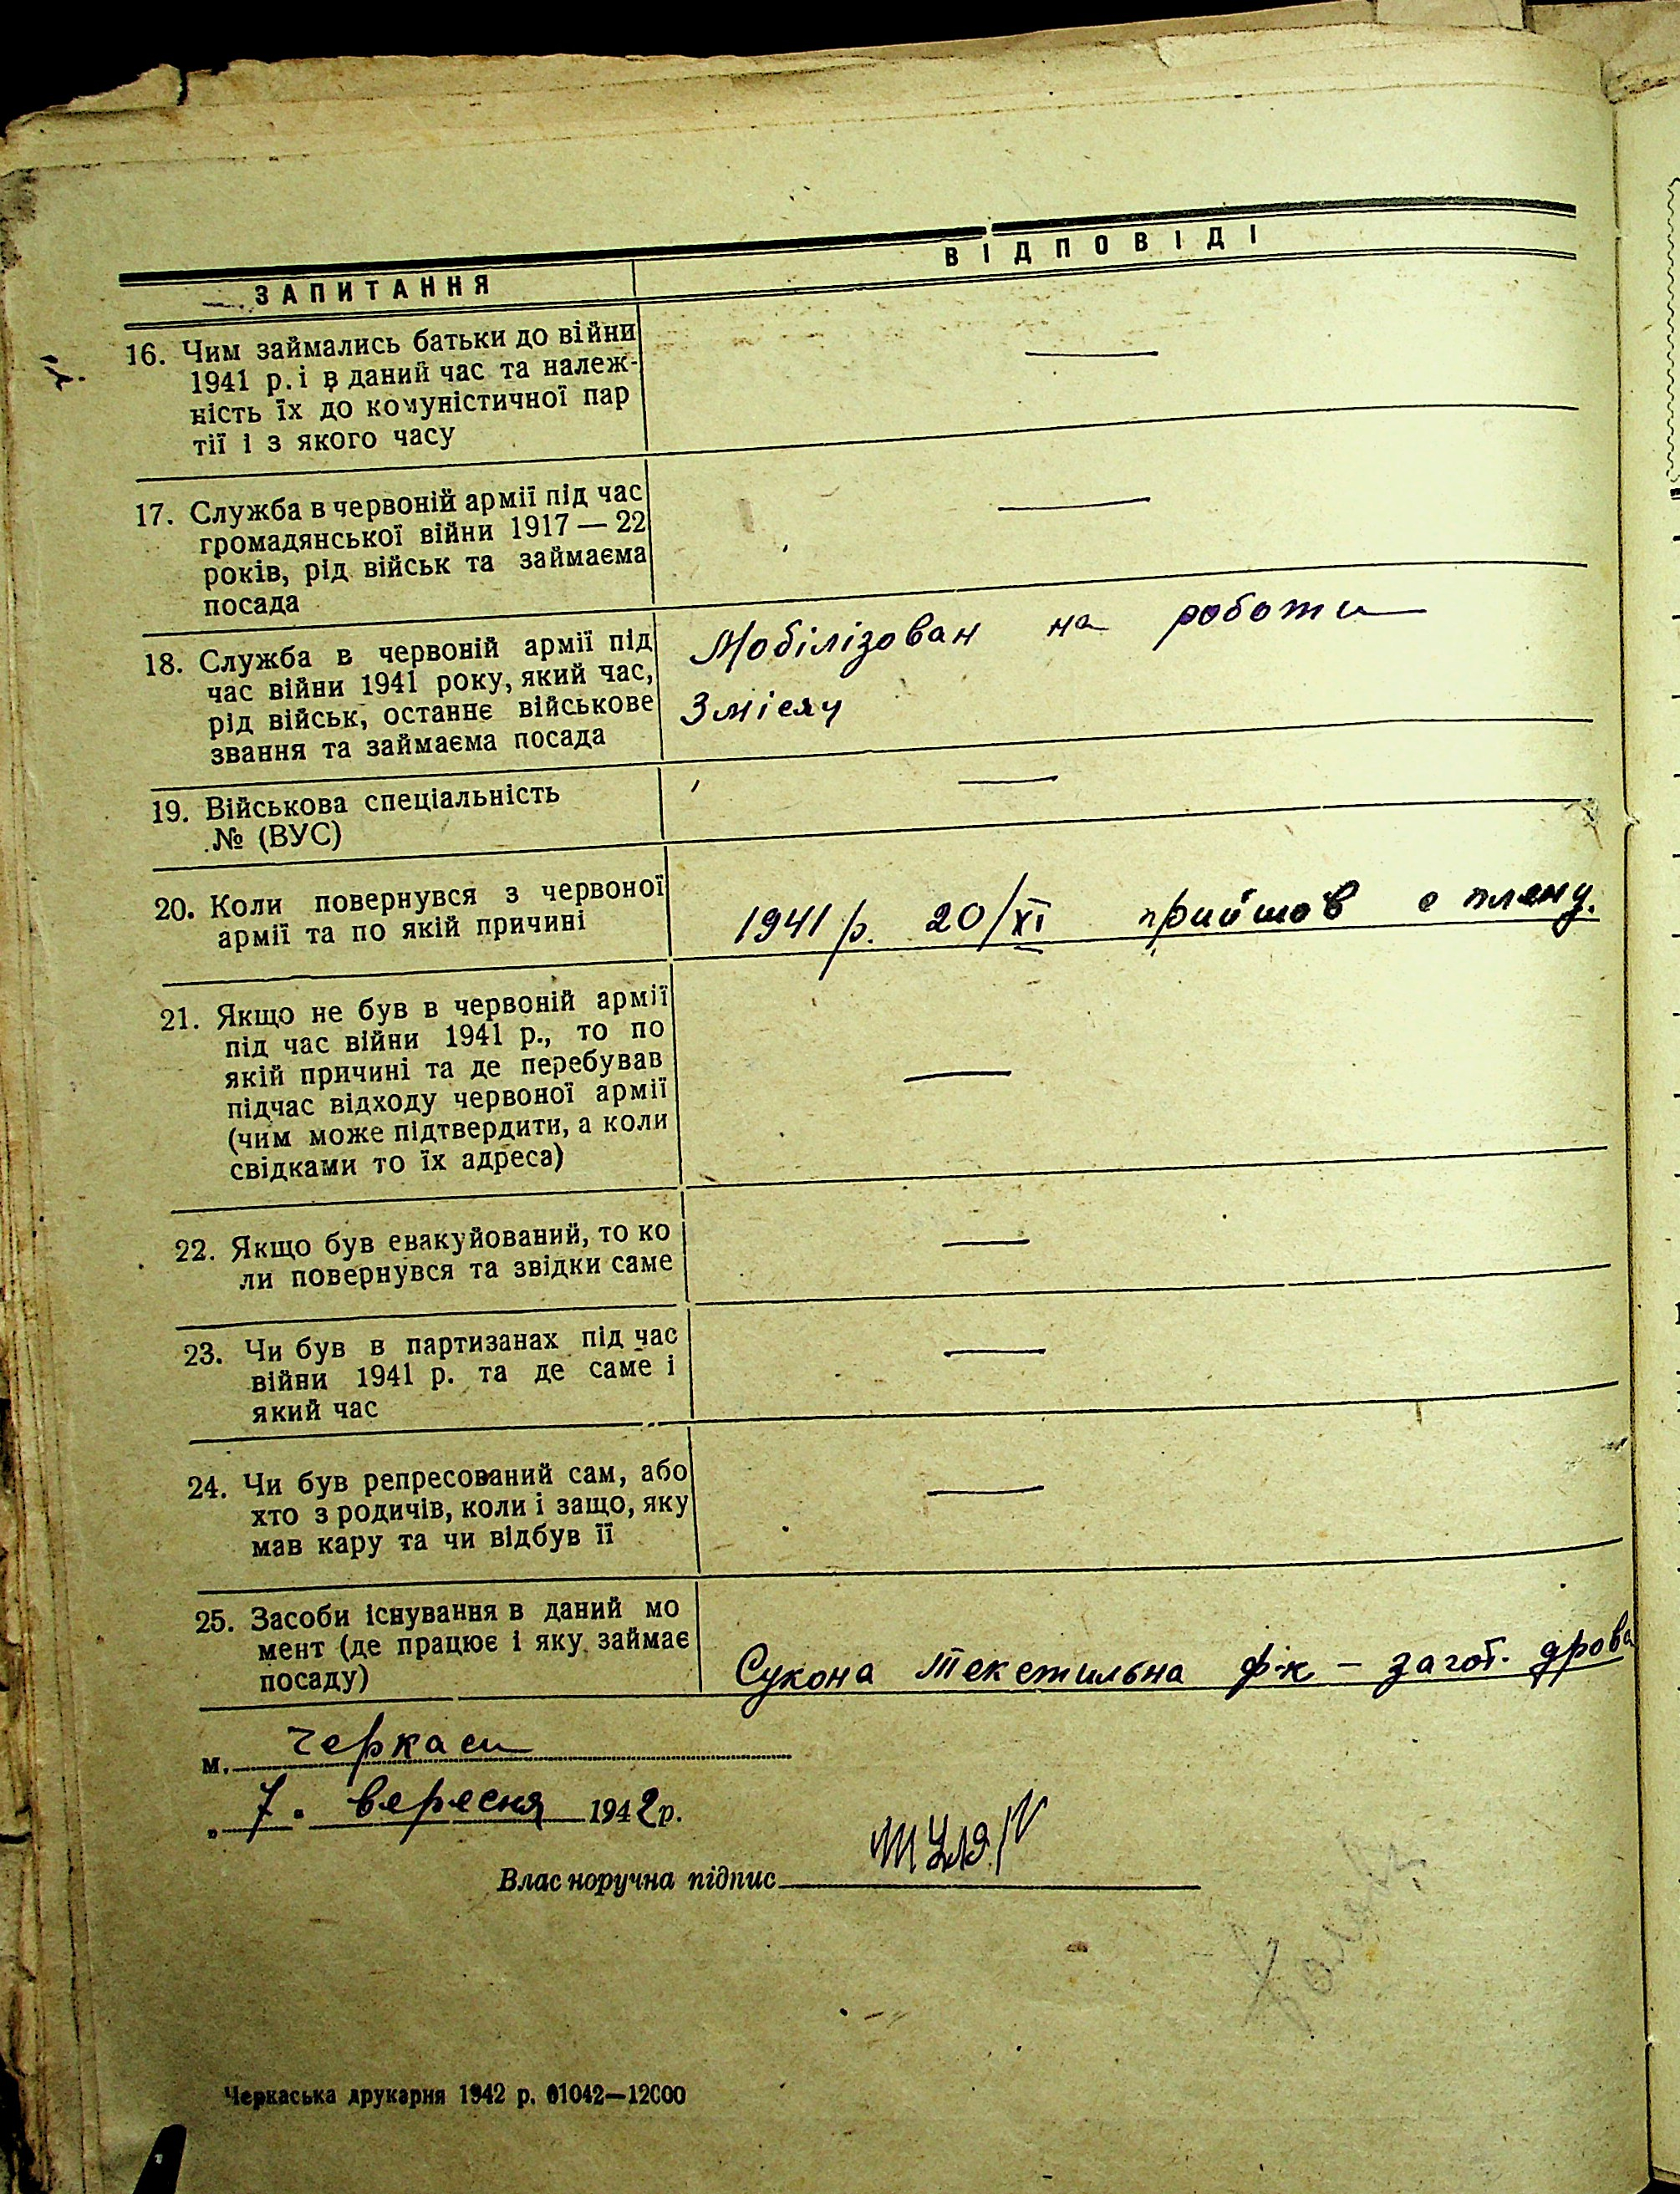 ЗАПИТАННЯ
ВІДПОВІДІ
16. Чим займались батьки до війни
1941 р. і в даний час та належ-
ність їх до комуністичної пар
тії і з якого часу
—
17. Служба в червоній армії під час
громадянської війни 1917 — 22
років, рід військ та займаєма
посада
—
18. Служба в червоній армії під
час війни 1941 року, який час,
рід військ, останнє військове
звання та займаєма посада
Мобілізован на роботи
3 місяц
19. Військова спеціальність
№ (ВУС)
—
20. Коли повернувся з червоної
армії та по якій причині
1941 р. 20/XI прийшов с плену.
21. Якщо не був в червоній армії
під час війни 1941 р., то по
якій причині та де перебував
підчас відходу червоної армії
(чим може підтвердити, а коли
свідками то їх адреса)
—
22. Якщо був евакуйований, то ко
ли повернувся та звідки саме
—
23. Чи був в партизанах під час
війни 1941 р. та де саме і
який час
—
24. Чи був репресований сам, або
хто з родичів, коли і защо, яку
мав кару та чи відбув її
—
25. Засоби існування в даний мо
мент (де працює і яку займає
посаду)
Сукона текстильна ф-к – загот. дрова
м. Черкаси
„ 7. вересня 1942 р.
Власноручна підпис
Черкаська друкарня 1942 р. 01042—12000